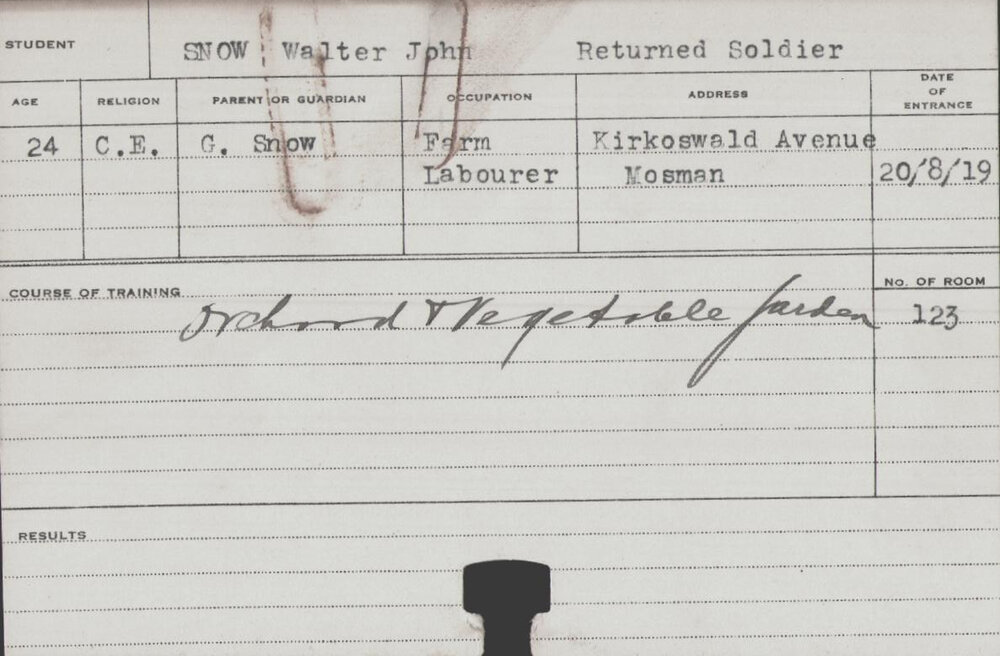 STUDENT SNOW Walter John Returned Soldier
AGE RELIGION PARENT OR GUARDIAN OCCUPATION ADDRESS DATE OF ENTRANCE
24 C.E. G. Snow Farm Kirkoswald Avenue
Labourer Mosman 20/8/19
COURSE OF TRAINING Orchard & Vegetable Garden
No. OF ROOM
123
RESULTS